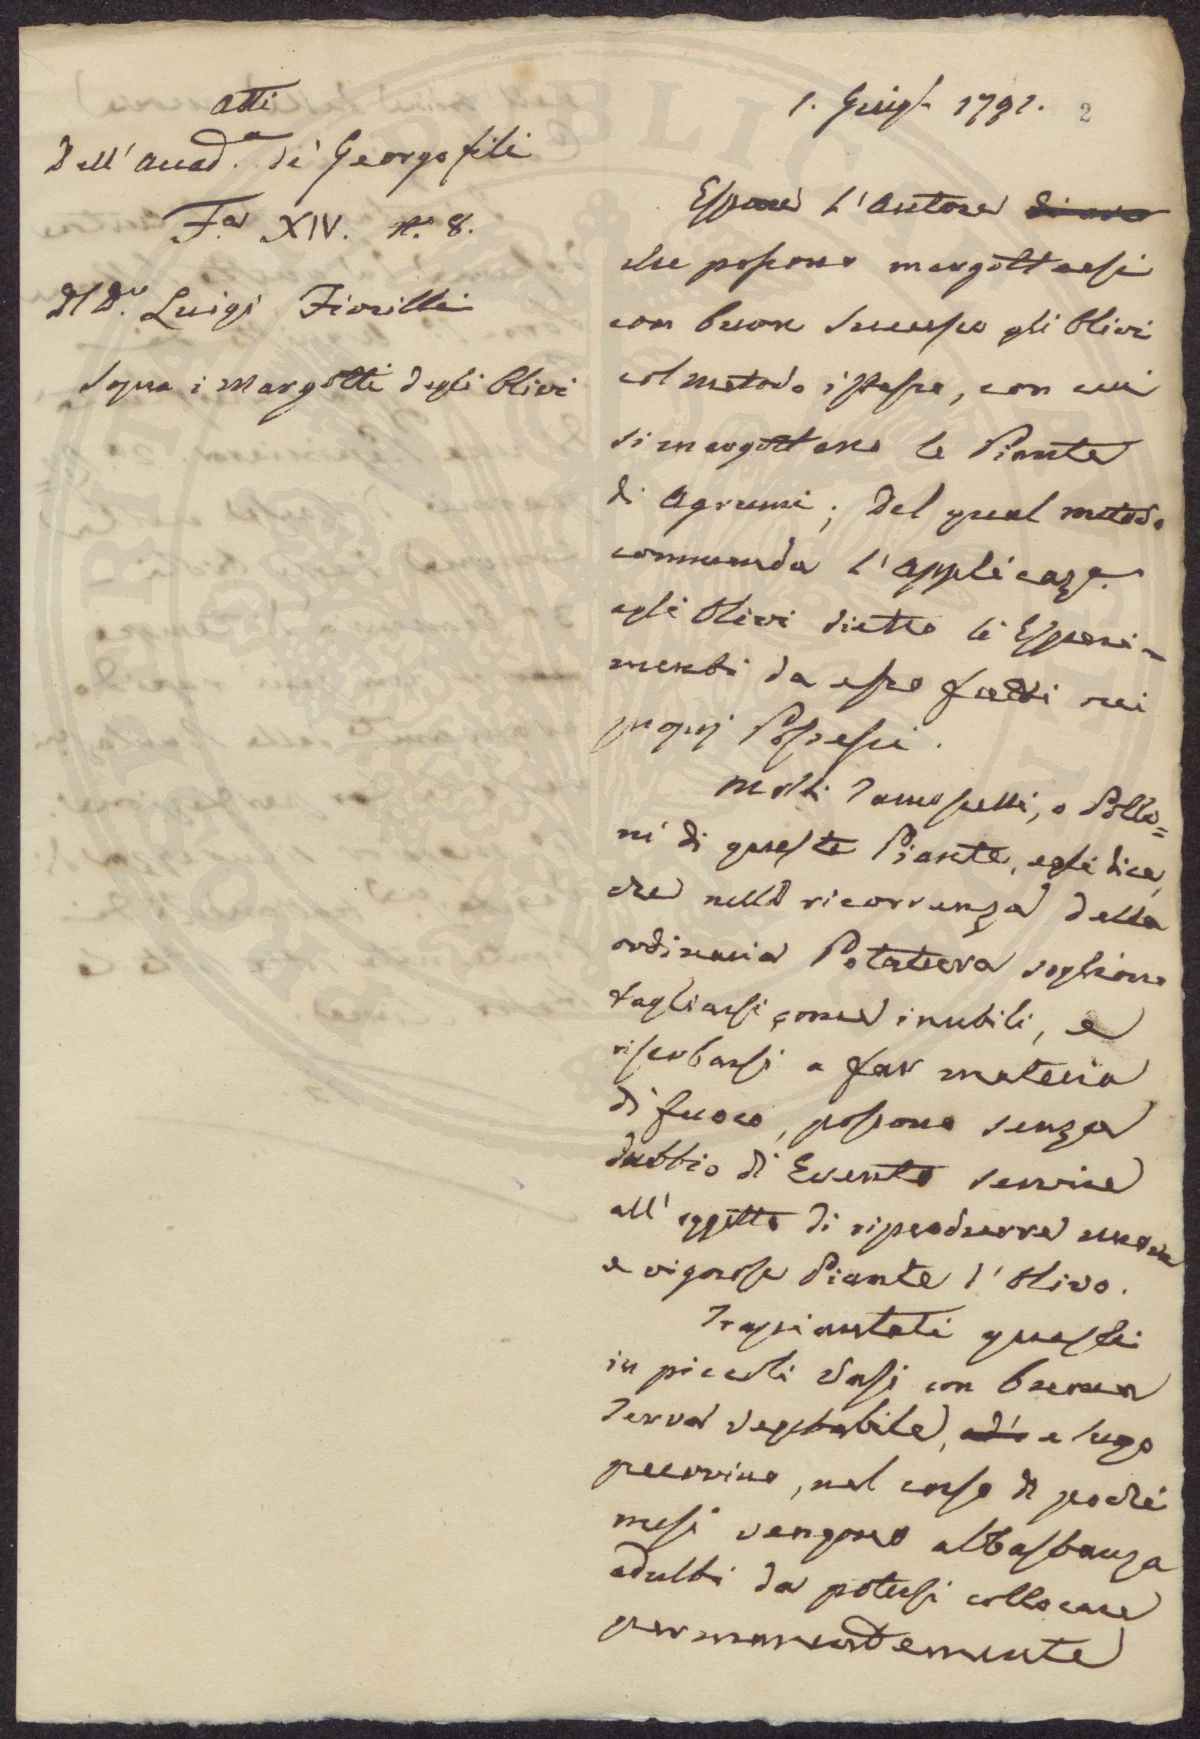 Atti
Dell'Accad.a de' Georgofili
F.a XIV. n. 8.
Del D.r Luigi Fiorilli
Sopra i Margotti degli Olivi
1. Giug.o 1791. 2
Espone l'Autore
che possono margottarsi
con buon successo gli Olivi
col metodo istesso, con cui
si margottano le Piante
di Agrumi; Del qual metodo
commenda l'applicaz.e
agli Olivi dietro li Esperi=
menti da esso fatti nei
proprj Possessi.
Molti ramoscelli, o Pollo=
ni di queste Piante, egli dice,
che nella ricorrenza della
ordinaria Potatura sogliono
tagliarsi come inutili, e
riserbarsi a far materia
di fuoco, possono senza
dubbio di Evento servire
all'oggetto di riprodurre nuove
e vigorose Piante d'Olivo.
Trapiantati questi
in piccoli Vasi con buona
Terra vegetabile, e sugo
pecorino, nel corso di pochi
mesi vengono abbastanza
adulti da potersi collocare
permanentemente